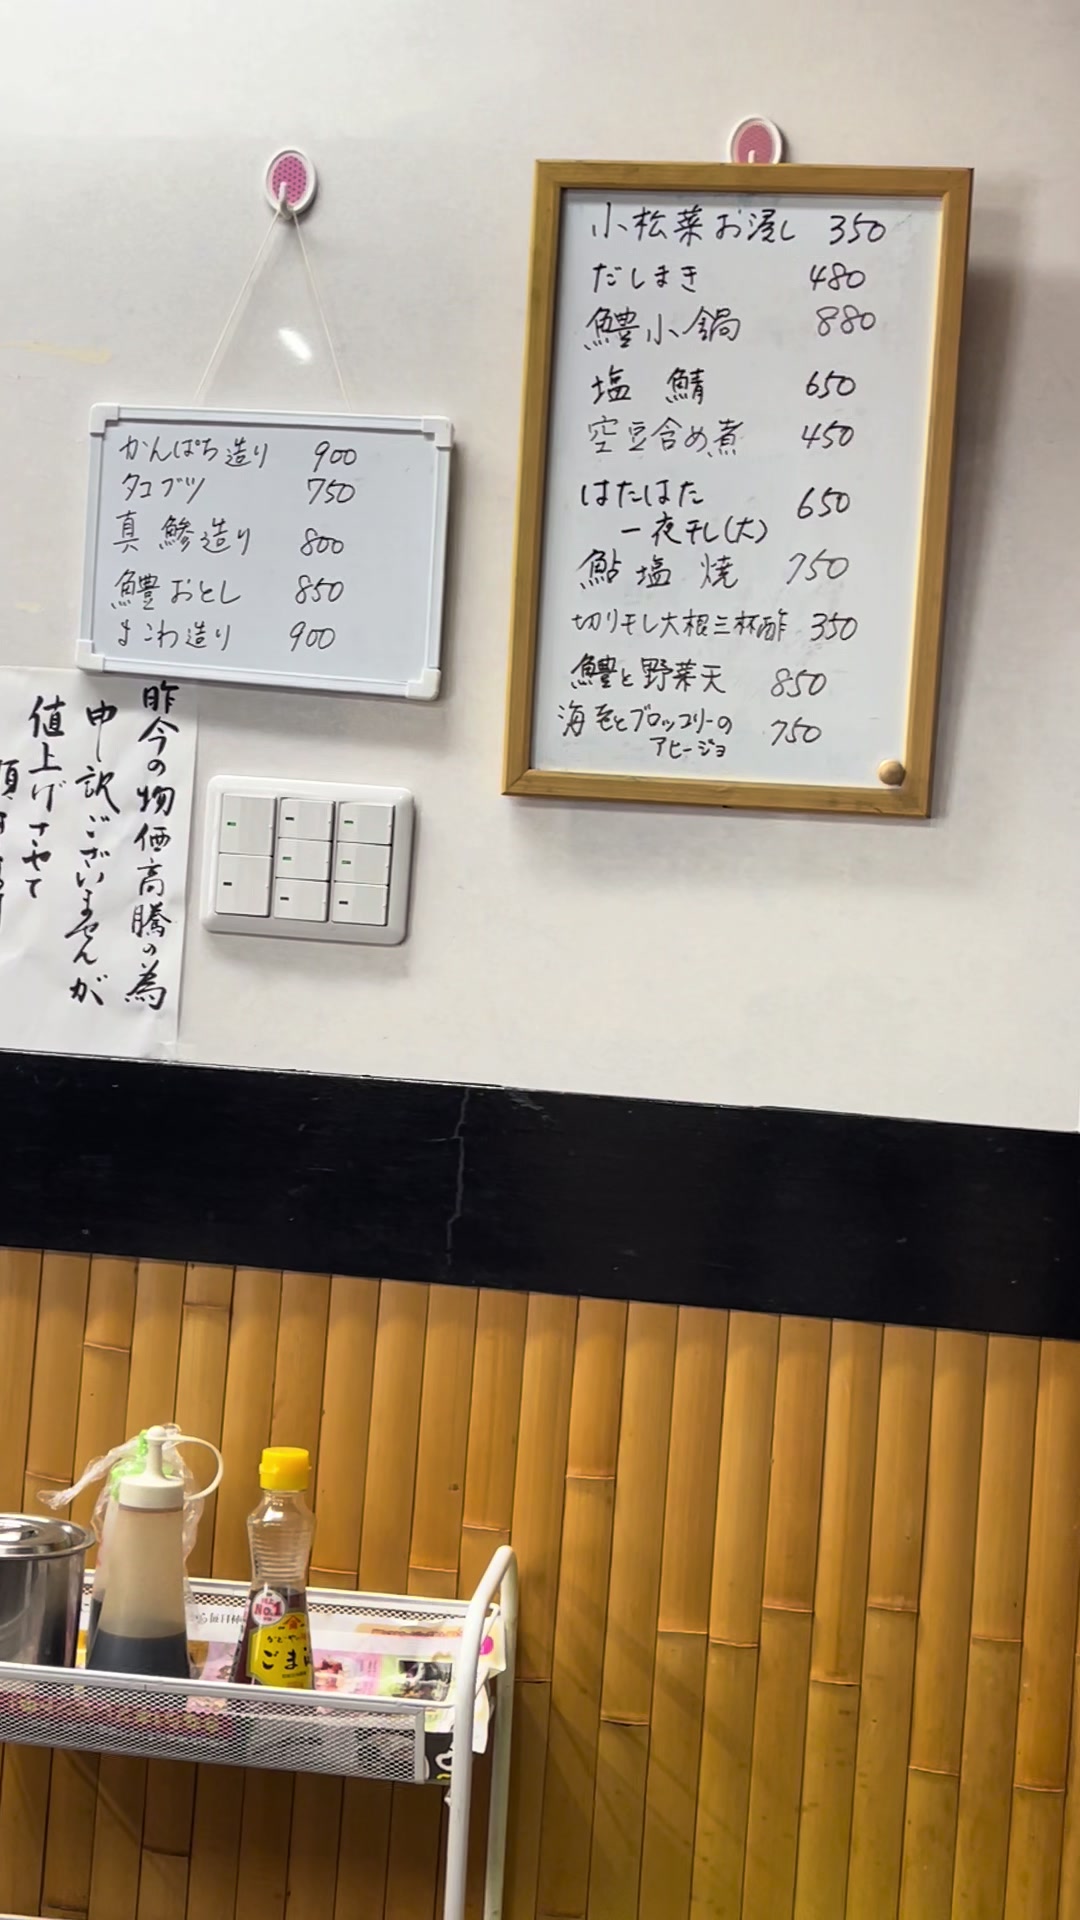 かんぱち造り 900
タコブツ 750
真鯵造り 800
鱧おとし 850
まこわ造り 900
小松菜お浸し 350
だしまき 480
鱧小鍋 880
塩鯖 650
空豆含め煮 450
はたはた
一夜干し(大) 650
鮎塩焼 750
切り干し大根三杯酢 350
鱧と野菜天 850
海老とブロッコリーの
アヒージョ 750
昨今の物価高騰の為
申し訳ございませんが
値上げさせて
No.1
ごま